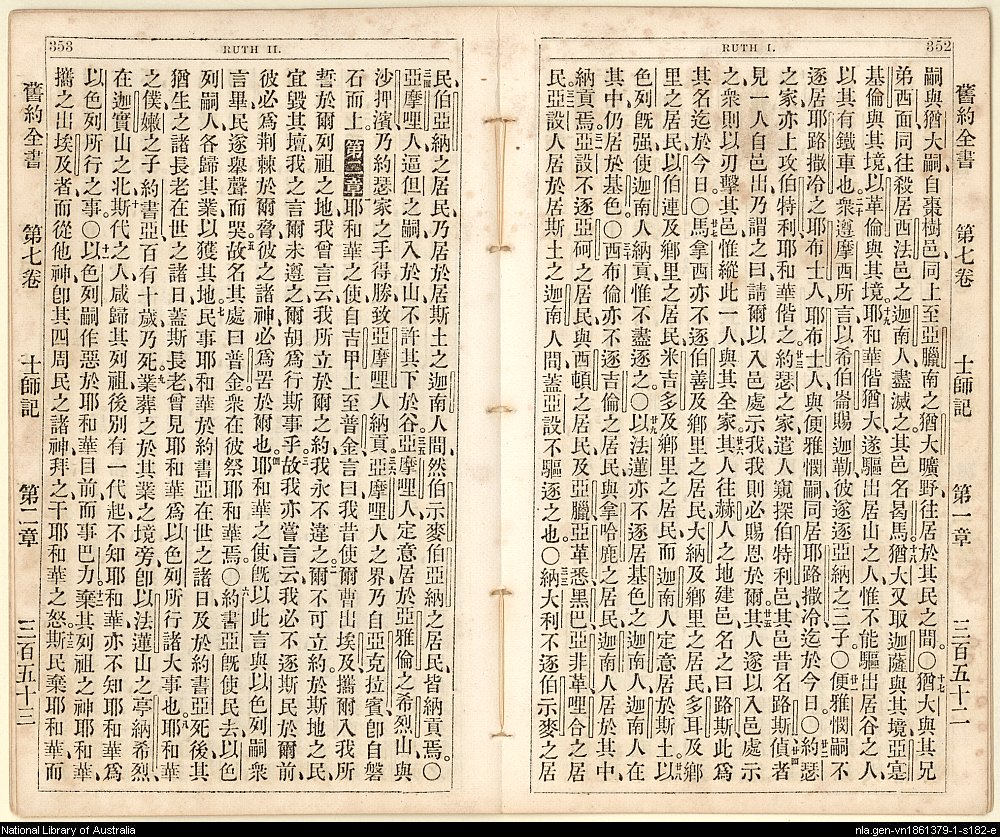 352
RUTH I.
舊約全書 第七卷 士師記 第一章 三百五十二
嗣與猶大嗣自棗樹邑同上至亞臘南之猶大曠野往居於其民之間○十七猶大與其兄
弟西面同往殺居西法邑之迦南人盡滅之其邑名曷馬十八猶大又取迦薩與其境亞寔
基倫與其境以革倫與其境十九耶和華偕猶大遂驅出居山之人惟不能驅出居谷之人
以其有鐵車也二十衆遵摩西所言以希伯崙賜迦勒彼遂逐亞納之三子○廿一便雅憫嗣不
逐居耶路撒冷之耶布士人耶布士人與便雅憫嗣同居耶路撒冷迄於今日○廿二約瑟
之家亦上攻伯特利耶和華偕之廿三約瑟之家遣人窺探伯特利邑其邑昔名路斯廿四偵者
見一人自邑出乃謂之曰請爾以入邑處示我我則必賜恩於爾廿五其人遂以入邑處示
之衆則以刃擊其邑惟縱此一人與其全家廿六其人往赫人之地建邑名之曰路斯此爲
其名迄於今日○廿七馬拿西亦不逐伯善及鄉里之居民大納及鄉里之居民多耳及鄉
里之居民以伯連及鄉里之居民米吉多及鄉里之居民而迦南人定意居於斯土廿八以
色列旣强使迦南人納貢惟不盡逐之○廿九以法蓮亦不逐居基色之迦南人迦南人在
其中仍居於基色○三十西布倫亦不逐吉倫之居民與拿哈鹿之居民迦南人居於其中
納貢焉三一亞設不逐亞砢之居民與西頓之居民及亞黑臘亞革悉黑巴亞非革哩合之居
民三二亞設人居於居斯土之迦南人間蓋亞設不驅逐之也○三三納大利不逐伯示麥之居
353
RUTH II.
民伯亞納之居民乃居於居斯土之迦南人間然伯示麥伯亞納之居民皆納貢焉○
三四亞摩哩人逼但之嗣入於山不許其下於谷三五亞摩哩人定意居於亞雅倫之希烈山與
沙押濱乃約瑟家之手得勝致亞摩哩人納貢三六亞摩哩人之界乃自亞克拉賓卽自磐
石而上 第二章 耶和華之使自吉甲上至普金言曰我昔使爾曹出埃及攜爾入我所
誓於爾列祖之地我曾言云我所立於爾之約我永不違之二爾不可立約於斯地之民
宜毀其壇我之言爾未遵之爾胡爲行斯事乎三故我亦嘗言云我必不逐斯民於爾前
彼必爲荆棘於爾脅彼之諸神必爲罟於爾也四耶和華之使旣以此言與以色列嗣衆
言畢民遂舉聲而哭五故名其處曰普金衆在彼祭耶和華焉○六約書亞旣使民去以色
列嗣人各歸其業以獲其地七民事耶和華於約書亞在世之諸日及於約書亞死後其
猶生之諸長老在世之諸日蓋斯長老曾見耶和華爲以色列所行諸大事也八耶和華
之僕嫩之子約書亞百有十歲乃死九衆葬之於其業之境旁卽以法蓮山之亭納希烈
在迦實山之北十斯代之人咸歸其列祖後別有一代起不知耶和華亦不知耶和華爲
以色列所行之事○十一以色列嗣作惡於耶和華目前而事巴力十二棄其列祖之神耶和華
攜之出埃及者而從他神卽其四周民之諸神拜之干耶和華之怒十三斯民棄耶和華而
舊約全書 第七卷 士師記 第二章 三百五十三
National Library of Australia
nla.gen-vn1861379-1-s182-e